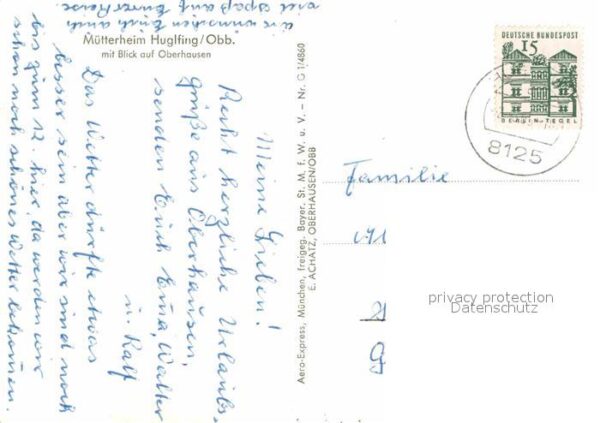 Mütterheim Huglfing/Obb.
mit Blick auf Oberhausen
Meine Lieben!
Recht herzliche Urlaubs-
grüße aus Oberhausen
senden Euch Erna, Walter
u. Ralf
Das Wetter dürfte etwas
besser sein aber wir sind noch
bis zum 12. hier, da werden wir
schon noch schönes Wetter bekommen.
wir wünschen Euch auch
viel Spaß auf Eurer Reise.
Aero-Express, München, freigeg. Bayer. St. M. F. W. u. V. – Nr. G 1/4860
E. ACHATZ, OBERHAUSEN/OBB
DEUTSCHE BUNDESPOST
15
BERLIN-TEGEL
8125
Familie
privacy protection
Datenschutz